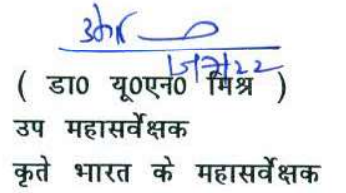 ( डा0 यू0एन0 मिश्र )
उप महासर्वेक्षक
कृते भारत के महासर्वेक्षक